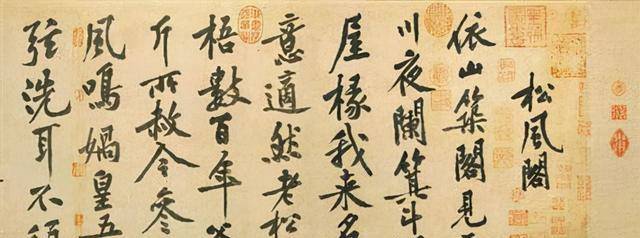 松風閣
依山築閣見
川夜闌箕斗
屋椽我来名
意適然老松
梧數百年
斤所赦今參
風鳴媧皇五
弦洗耳不